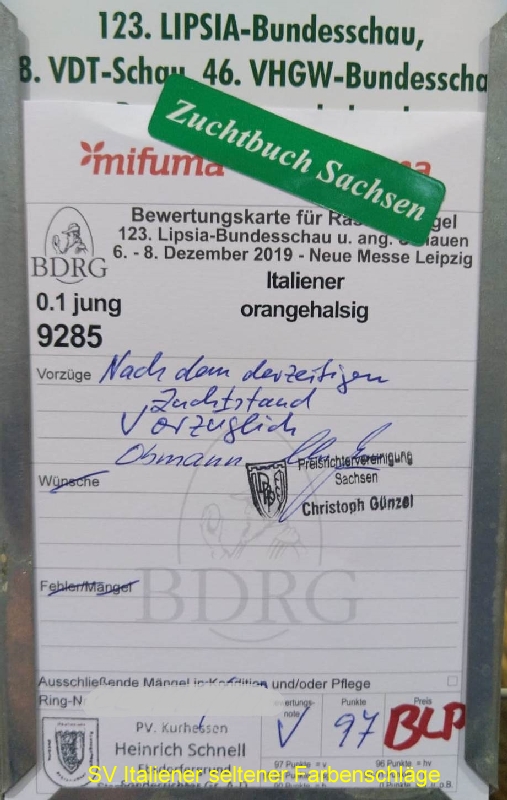 123. LIPSIA-Bundesschau,
8. VDT-Schau, 46. VHGW-Bundesscha
Zuchtbuch Sachsen
mifuma
Bewertungskarte für Ras gel
123. Lipsia-Bundesschau u. ang. Schauen
6. - 8. Dezember 2019 - Neue Messe Leipzig
BDRG
Italiener
0.1 jung
orangehalsig
9285
Vorzüge Nach dem derzeitigen
Zuchtstand
Vorzüglich
Obmann
Preisrichtervereinigung
Wünsche
Sachsen
Christoph Günzel
Fehler/Mängel
BDRG
Ausschließende Mängel in Kondition und/oder Pflege
Ring-N
wertungs-
note
Punkte
Preis
V
97
BLP
PV. Kurhessen
Heinrich Schnell
97 Punkte = v
96 Punkte = hv
SV Italiener seltener Farbenschläge